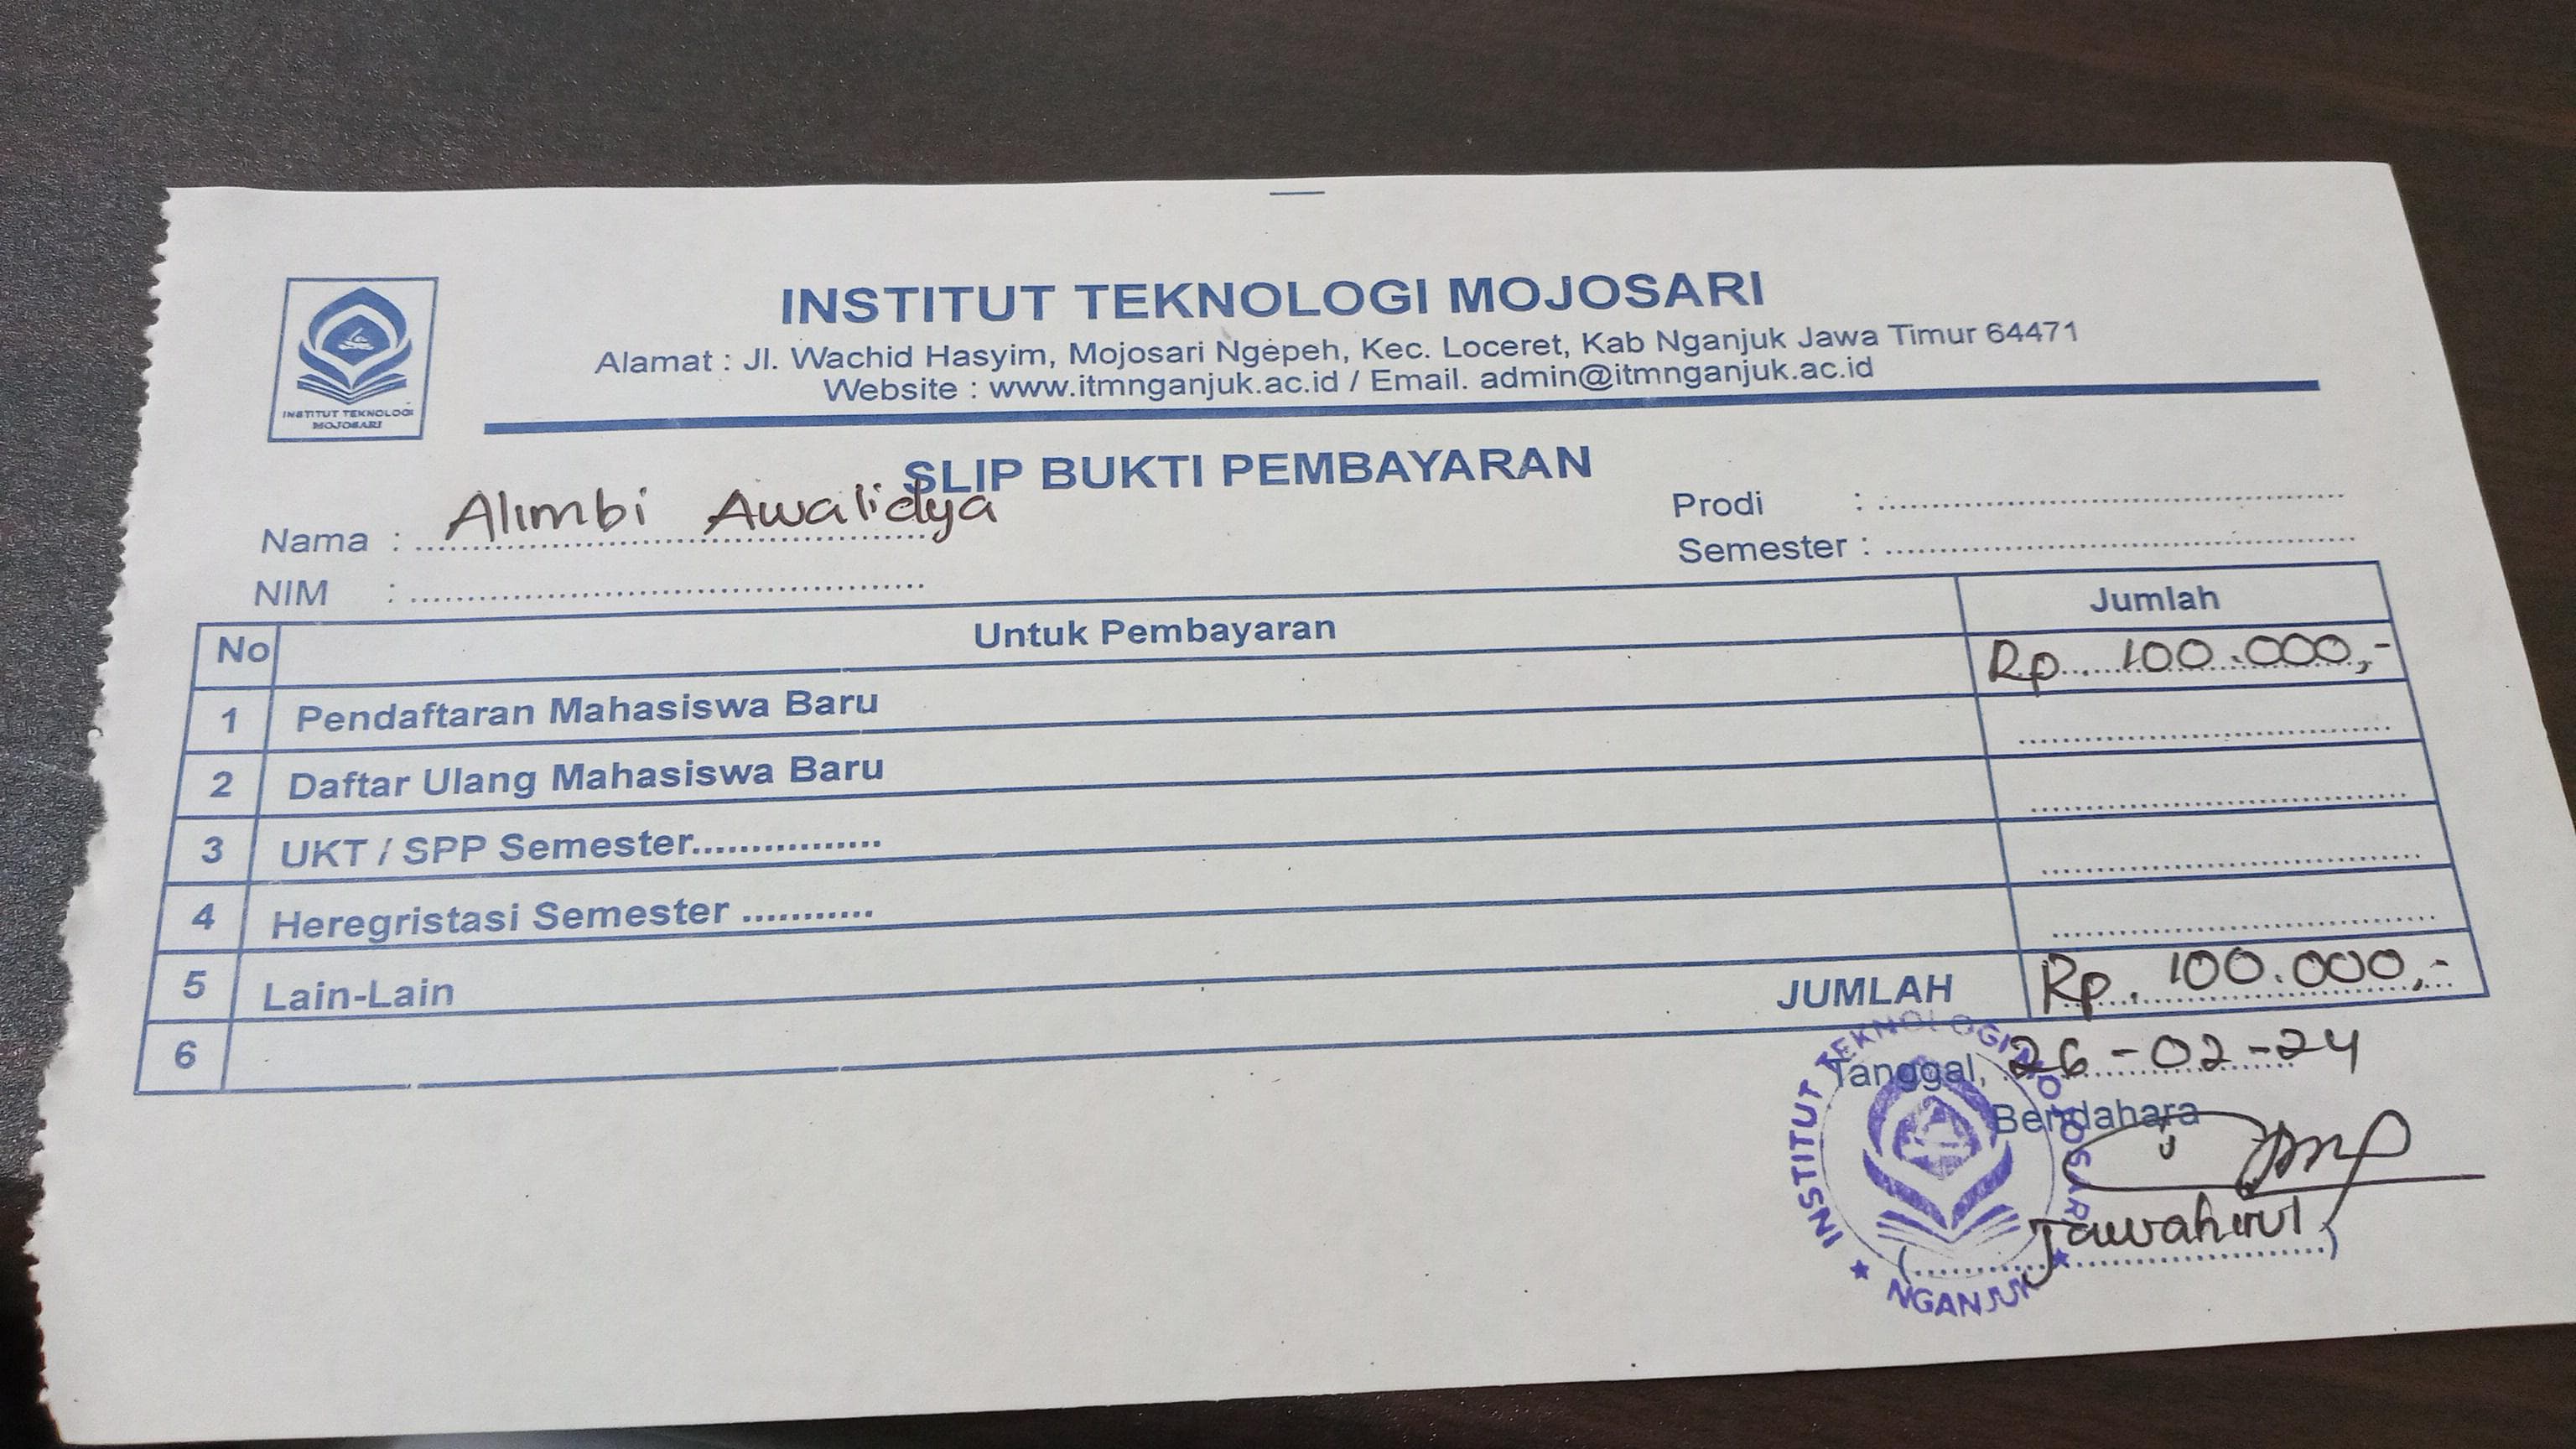 INSTITUT TEKNOLOGI
MOJOSARI
INSTITUT TEKNOLOGI MOJOSARI
Alamat : Jl. Wachid Hasyim, Mojosari Ngepeh, Kec. Loceret, Kab Nganjuk Jawa Timur 64471
Website : www.itmnganjuk.ac.id / Email. admin@itmnganjuk.ac.id
SLIP BUKTI PEMBAYARAN
Nama : Alimbi Awalidya
NIM : ........................................
Prodi : ........................................
Semester : ........................................
No Untuk Pembayaran Jumlah
1 Pendaftaran Mahasiswa Baru Rp. 100.000,-
2 Daftar Ulang Mahasiswa Baru
3 UKT / SPP Semester................
4 Heregristasi Semester ...........
5 Lain-Lain
6 JUMLAH Rp. 100.000,-
Tanggal, 26-02-24
Bendahara
(Jawahirul)
INSTITUT TEKNOLOGI MOJOSARI
★ NGANJUK ★